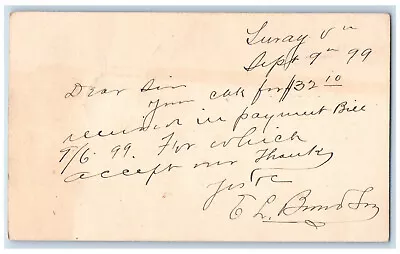 Luray Va
Sept 9th 99
Dear Sir
Your ck for $32 10
received in payment Bill
9/6 99. For which
accept our Thanks
Yrs &c
E L.